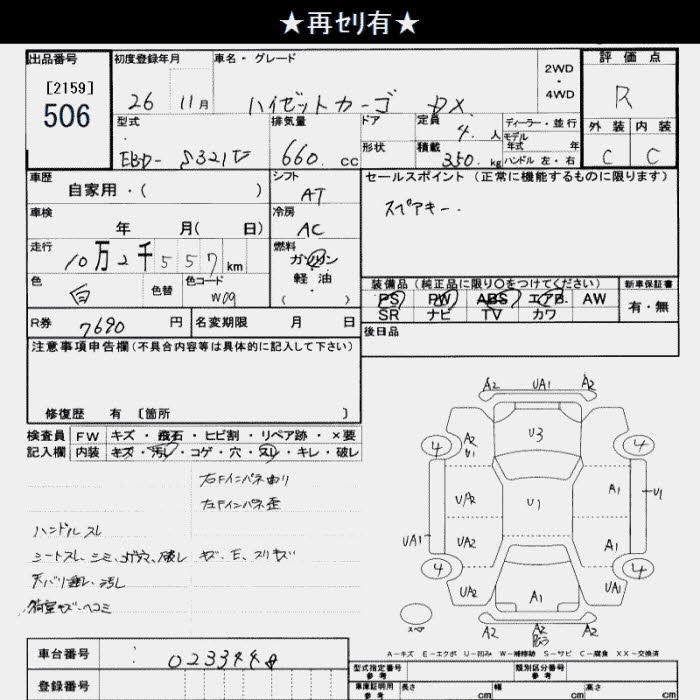 ★再セリ有★
出品番号 初度登録年月 車名・グレード 2WD・4WD 評価点
[2159]
506
26 11月 ハイゼットカーゴ DX R
型式 排気量 ドア 定員 4.人 ディーラー・並行 外装 内装
モデル年式 年
EBD- S321V 660. cc 形状 積載 350. kg ハンドル 左・右 C C
車歴 シフト セールスポイント (正常に機能するものに限ります)
自家用・( ) AT スペアキー.
車検 冷房
年 月( 日) AC
走行 燃料
10万2千557km ガソリン
軽・油
( )
色 白 色替 色コード W09
装備品(純正品に限り〇をつけてください) 新車保証書
PS PW ABS エアB. AW 有・無
SR ナビ TV カワ
R券 7690 円 名変期限 月 日
後日品
注意事項申告欄(不具合内容等は具体的に記入して下さい)
修復歴 有 〔箇所 〕
検査員 FW キズ・飛石・ヒビ割・リペア跡・×要
記入欄 内装 キズ・汚レ・コゲ・穴・スレ・キレ・破レ
右Fインパネ曲り
左Fインパネ歪
ハンドルスレ
シートスレ、シミ、コゲ穴、破レ キズ、E、スリキズ
天バリ 汚レ
荷室キズ・ヘコミ
A2 UA1 A2
4 A2 U1 U3 4
UA2 U1 A1 U1
UA1 UA2 A1
4 4
UA2 A1 UA2
スペア A2 A2 A2
A－キズ E－エクボ U－凹み W－補修跡 S－サビ C－腐食 XX－交換済
車台番号 0233448
登録番号
型式指定番号 参考 類別区分番号 参考
車庫証明用 参考 長さ cm 幅 cm 高さ cm